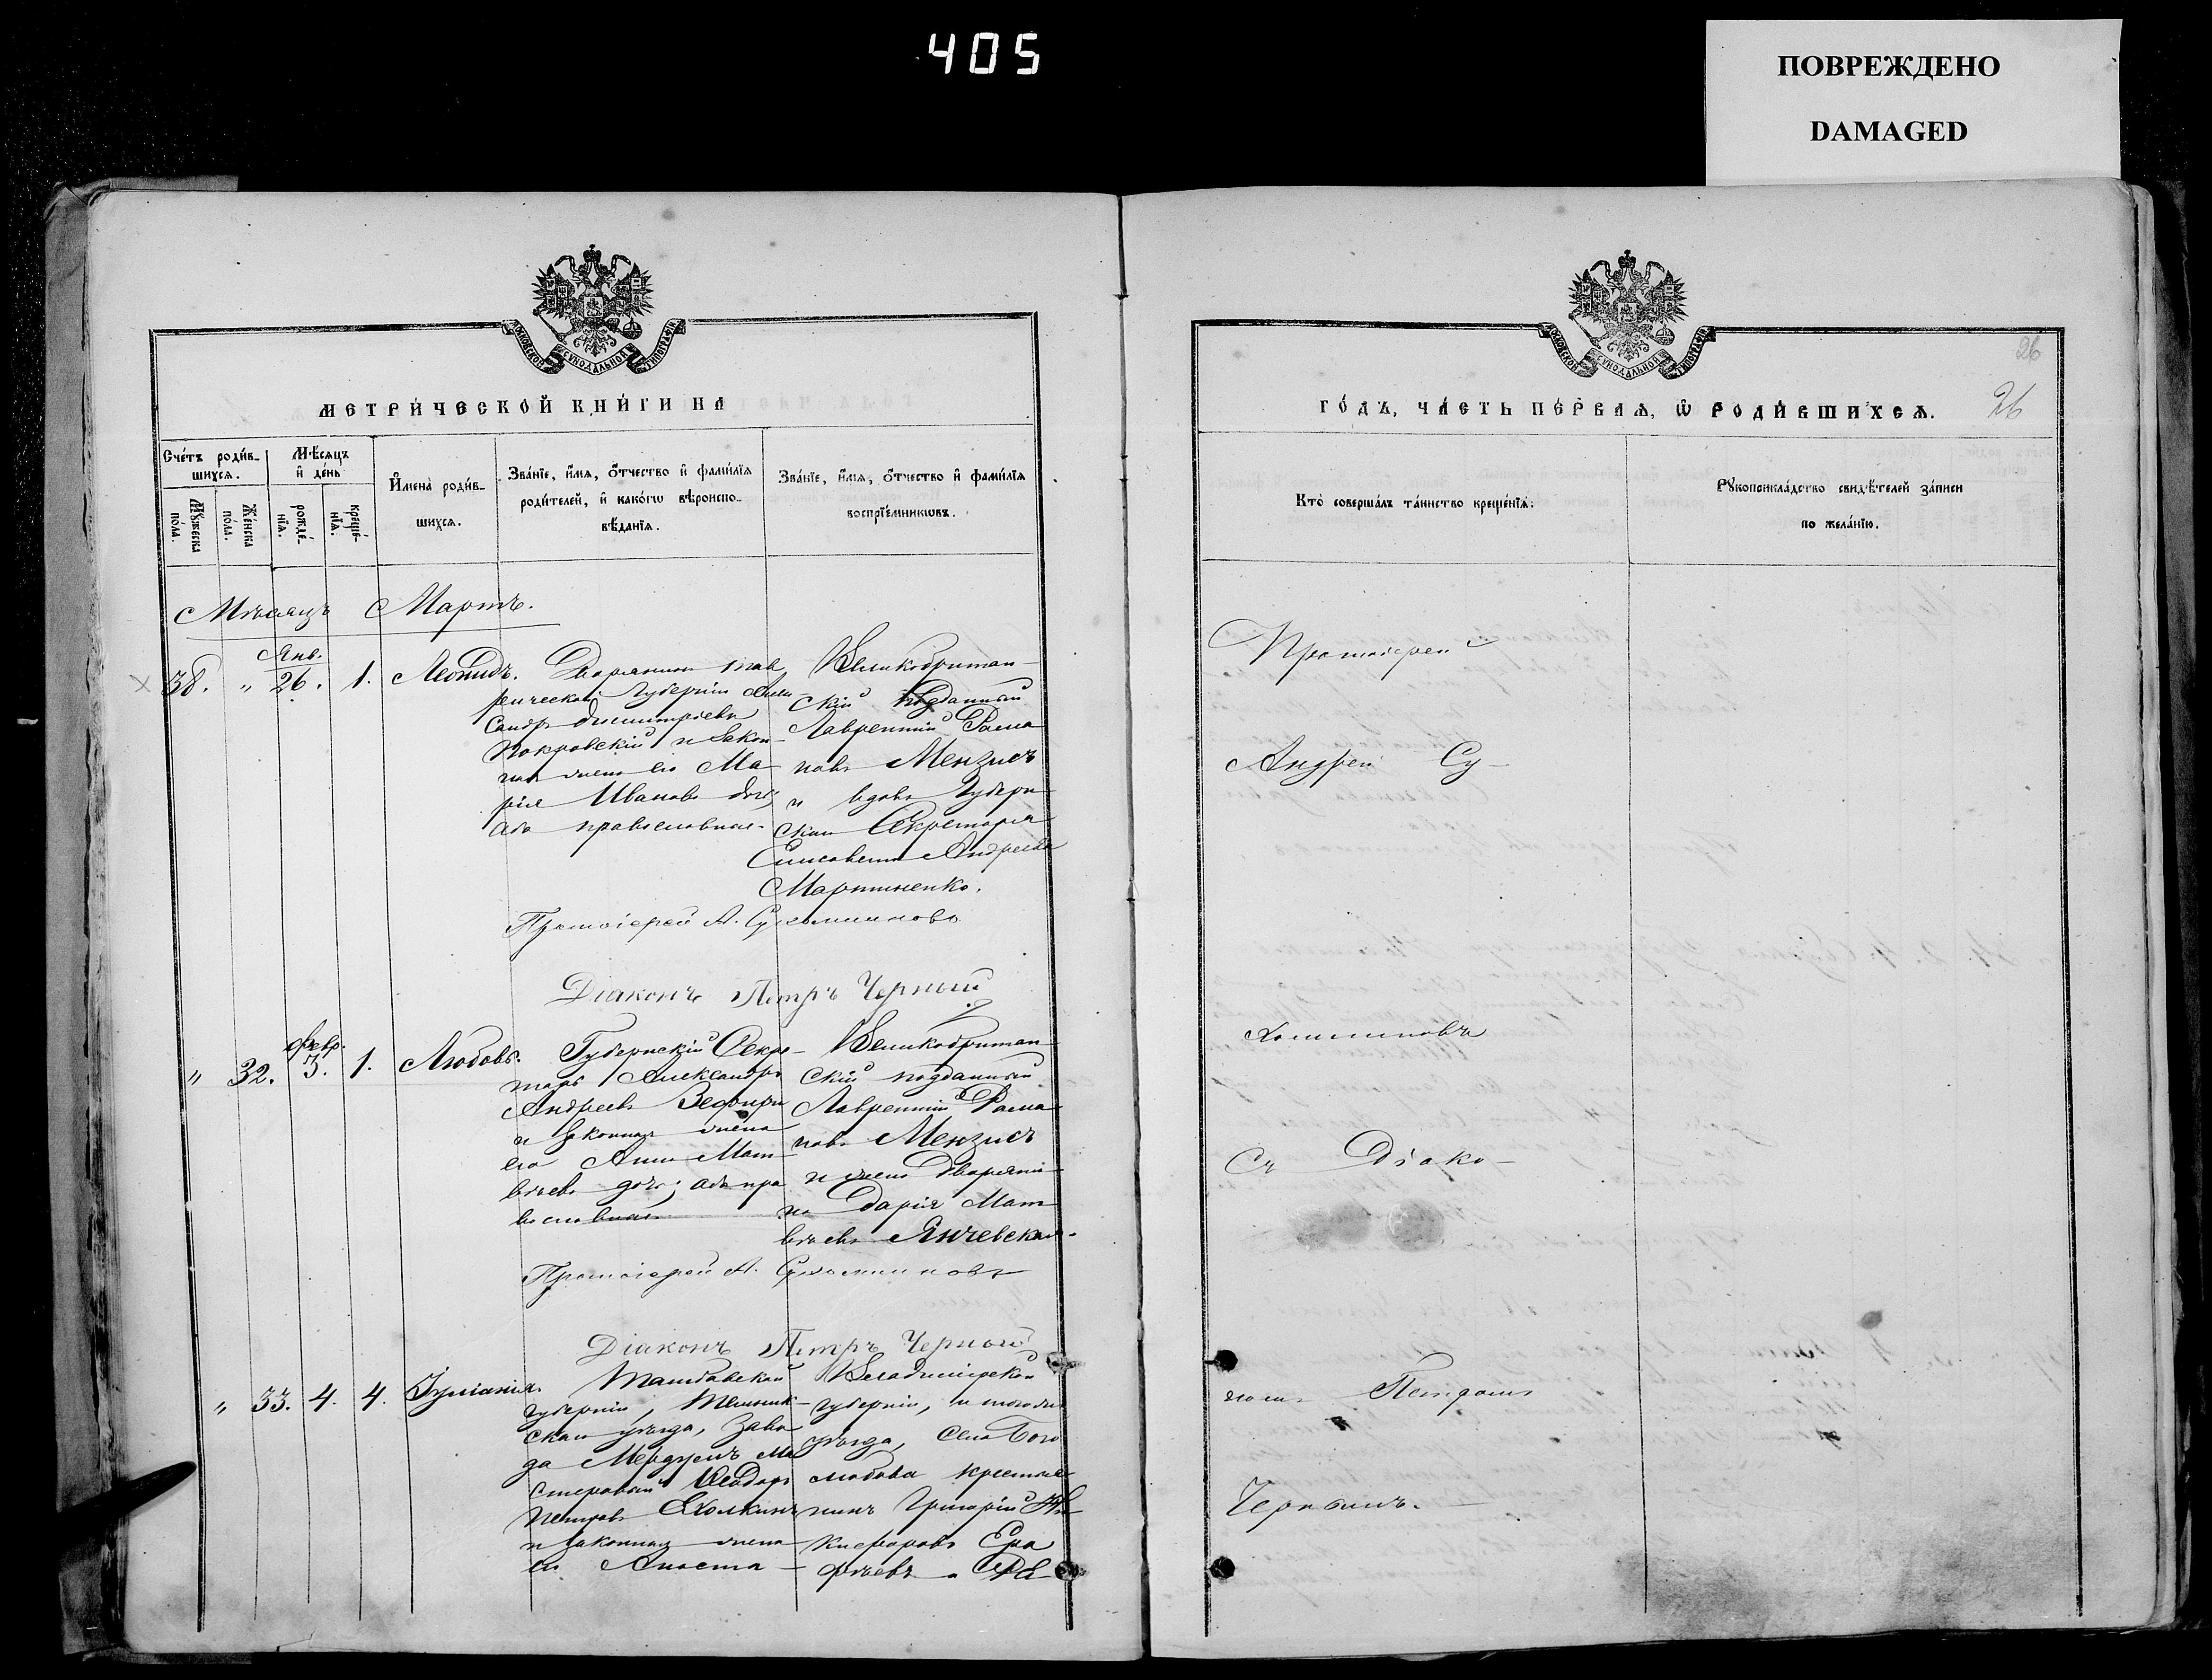 405
ПОВРЕЖДЕНО
DAMAGED
МОСКОВСКОЙ СУНОДАЛЬНОЙ ТИПОГРАФІИ
МЕТРИ́ЧЕСКОЙ КНИ́ГИ НА
Сче́тъ роди́в-
шихся.
Мѣ́сяцъ
и҆ де́нь
Мꙋ́жеска
по́ла.
Же́нска
по́ла.
рожде́-
нїѧ.
креще́-
нїѧ.
И҆мена̀ роди́в-
шихсѧ.
Зва́нїе, и҆́мѧ, ѻ҆́тчество и҆ фамн́лїѧ
роди́телей, и҆ како́гѡ вѣроиспо-
вѣ́данїѧ.
Зва́нїе, и҆́мѧ, ѻ҆́тчество и҆ фами́лїѧ
воспрїе́мникѡвъ.
Мѣсяцъ Мартъ.
38. " Янв. 26. 1. Леонидъ.
Дворянинъ Тав
рической Губерніи Алек
сандръ Димитріевъ
Покровскій и закон-
ная жена его Ма-
рія Иванова дочь;
оба православные.
Великобритан-
скій подданный
Лаврентій Рома
новъ Мензисъ
и вдова Губерн
скаго Секретаря
Елисавета Андреева
Мартиненко.
Протоіерей А. Сухомлиновъ
Діаконъ Петръ Черный
" 32. Февр. 3. 1. Любовь.
Губернскій Секре-
тарь Александръ
Андреевъ
и законная жена
его Анна Мат-
вѣева дочь; оба пра
вославные.
Великобритан
скій подданный
Лаврентій Рома
новъ Мензисъ
и жена дворяни-
на Дарія Мат
вѣева Янчевская.
Протоіерей А. Сухомлиновъ
Діаконъ Петръ Черный
" 33. 4. 4. Іуліанія.
Тамбовской
губерніи, Темник-
скаго уѣзда, заво
да Мердушъ Ма
стеровый Ѳеодоръ
Петровъ
и законная жена
его Анаста-
Владимірской
губерніи, и того же
уѣзда, села Бого
любова крестья
нинъ Григорій Ни
кифоровъ Ера
фѣевъ и
МОСКОВСКОЙ СУНОДАЛЬНОЙ ТИПОГРАФІИ
26
ГО́ДЪ, ЧА́СТЬ ПЕ́РВАѦ, Ѡ҆ РОДИ́ВШИХСѦ. 26
Кто̀ соверша́лъ та́инство креще́нїѧ:
Рꙋкоприкла́дство свидѣ́телей за́писи
по жела́нїю.
Протоіерей
Андрей Су-
хомлиновъ
Съ Діако-
номъ Петромъ
Чернымъ.